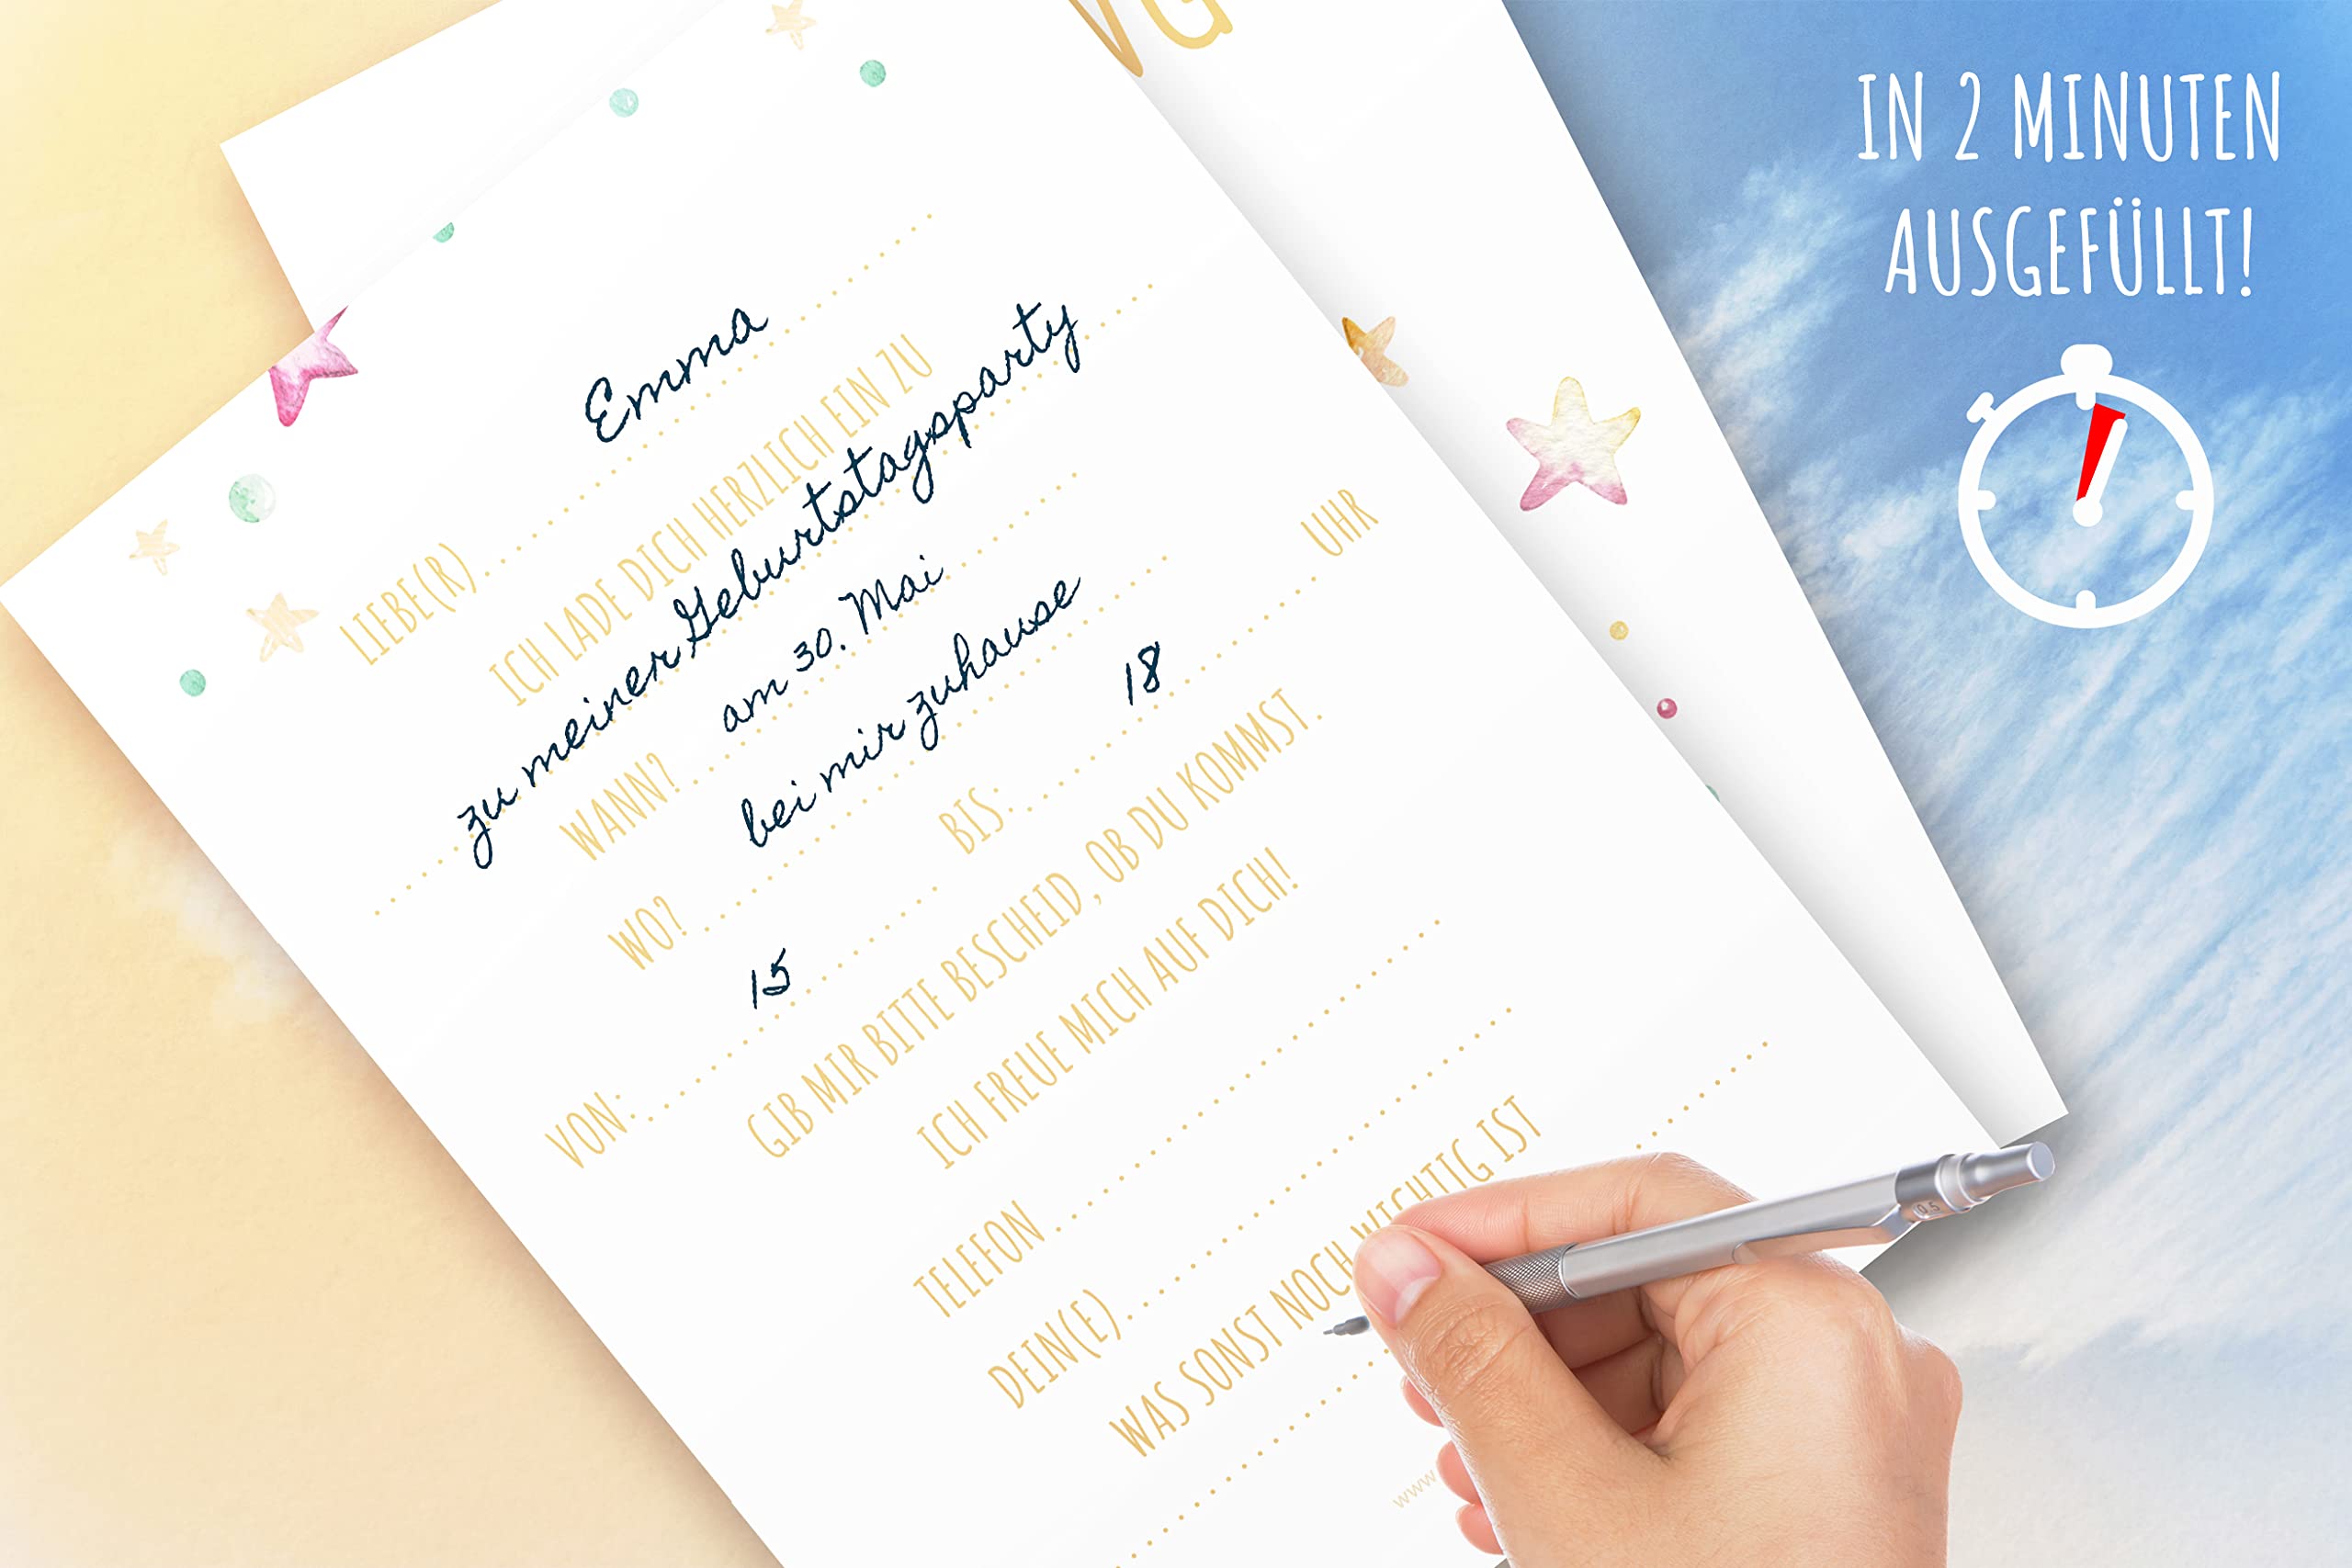 IN 2 MINUTEN
AUSGEFÜLLT!
LIEBE(R) Emma
ICH LADE DICH HERZLICH EIN ZU
zu meiner Geburtstagsparty
WANN? am 30. Mai
WO? bei mir zuhause
VON: 15 BIS: 18 UHR
GIB MIR BITTE BESCHEID, OB DU KOMMST.
ICH FREUE MICH AUF DICH!
TELEFON
DEIN(E)
WAS SONST NOCH WICHTIG IST
www
0.5